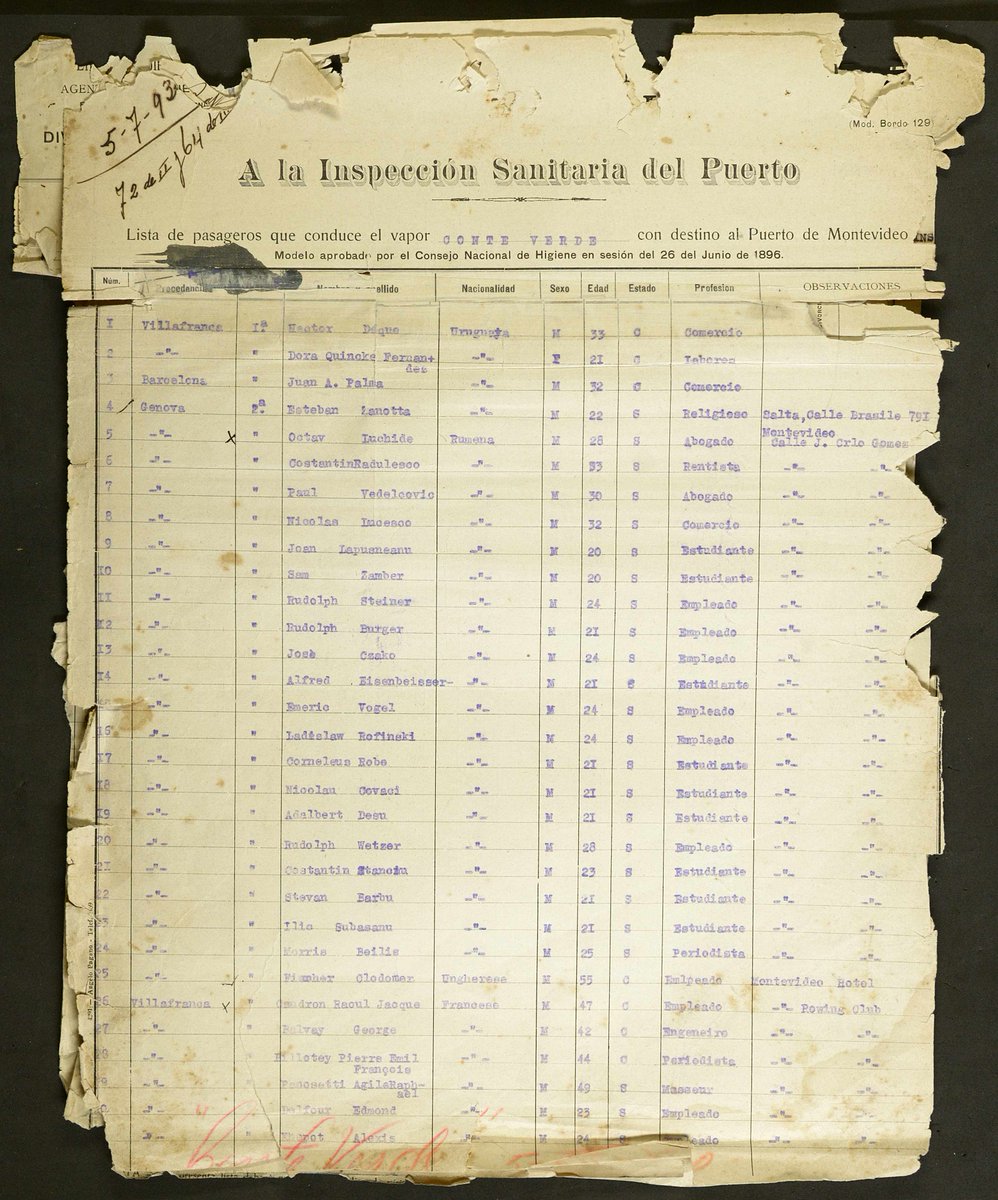 AGEN
DI
5-7-93
72 de II
(Mod. Bordo 129)
A la Inspección Sanitaria del Puerto
Lista de pasageros que conduce el vapor CONTE VERDE con destino al Puerto de Montevideo
Modelo aprobado por el Consejo Nacional de Higiene en sesión del 26 del Junio de 1896.
Núm. Procedencia ellido Nacionalidad Sexo Edad Estado Profesion OBSERVACIONES
1 Villafranca 1ª Hector Deque Uruguaya M 33 C Comercio
2 -"- " Dora Quincke Fernan+ -"- F 21 C Labores
dez
3 Barcelona " Juan A. Palma -"- M 32 C Comercio
4 Genova 2ª Esteban Zanotta -"- M 22 S Religioso Salta,Calle Brasile 791
Montevideo
5 -"- x " Octav Luchide Rumena M 28 S Abogado Calle J. Crlo Gomez
6 -"- " CostantinRadulesco -"- M 33 S Rentista -"- -"-
7 -"- " Paul Vedelcovic -"- M 30 S Abogado -"- -"-
8 -"- " Nicolas Lucesco -"- M 32 S Comercio -"- -"-
9 -"- " Joan Lapusneanu -"- M 20 S Estudiante -"- -"-
10 -"- " Sam Zamber -"- M 20 S Estudiante -"- -"-
11 -"- " Rudolph Steiner -"- M 24 S Empleado -"- -"-
12 -"- " Rudolph Burger -"- M 21 S Empleado -"- -"-
13 -"- " Josè Czako -"- M 24 S Empleado -"- -"-
14 -"- " Alfred Eisenbeisser- -"- M 21 S Estudiante -"- -"-
-"- " Emeric Vogel -"- M 24 S Empleado -"- -"-
16 -"- " Ladislaw Rofinski -"- M 24 S Empleado -"- -"-
17 -"- " Corneleus Robe -"- M 21 S Estudiante -"- -"-
18 -"- " Nicolau Covaci -"- M 21 S Estudiante -"- -"-
19 -"- " Adalbert Desu -"- M 21 S Estudiante -"- -"-
20 -"- " Rudolph Wetzer -"- M 28 S Empleado -"- -"-
21 -"- " Costantin Stanciu -"- M 23 S Estudiante -"- -"-
22 -"- " Stevan Barbu -"- M 21 S Estudiante -"- -"-
23 -"- " Ilie Subasanu -"- M 21 S Estudiante -"- -"-
24 -"- " Morris Beilis -"- M 25 S Periodista -"- -"-
25 -"- " Fischer Clodomer Ungherese M 55 C Emlpeado Montevideo Hotel
26 Villafranca x " Caudron Raoul Jacque Francese M 47 C Empleado -"- Rowing Club
27 -"- " Balvay George -"- M 42 C Engeneire -"- -"-
28 -"- " Billotey Pierre Emil -"- M 44 C Periodista -"- -"-
François
29 -"- " Panosetti AgileRaph- -"- M 49 S Masseur -"- -"-
ael
-"- " Balfour Edmond -"- M 23 S Empleado -"- -"-
-"- " Alexis -"- M 24 S -"- -"-
Conte Verde